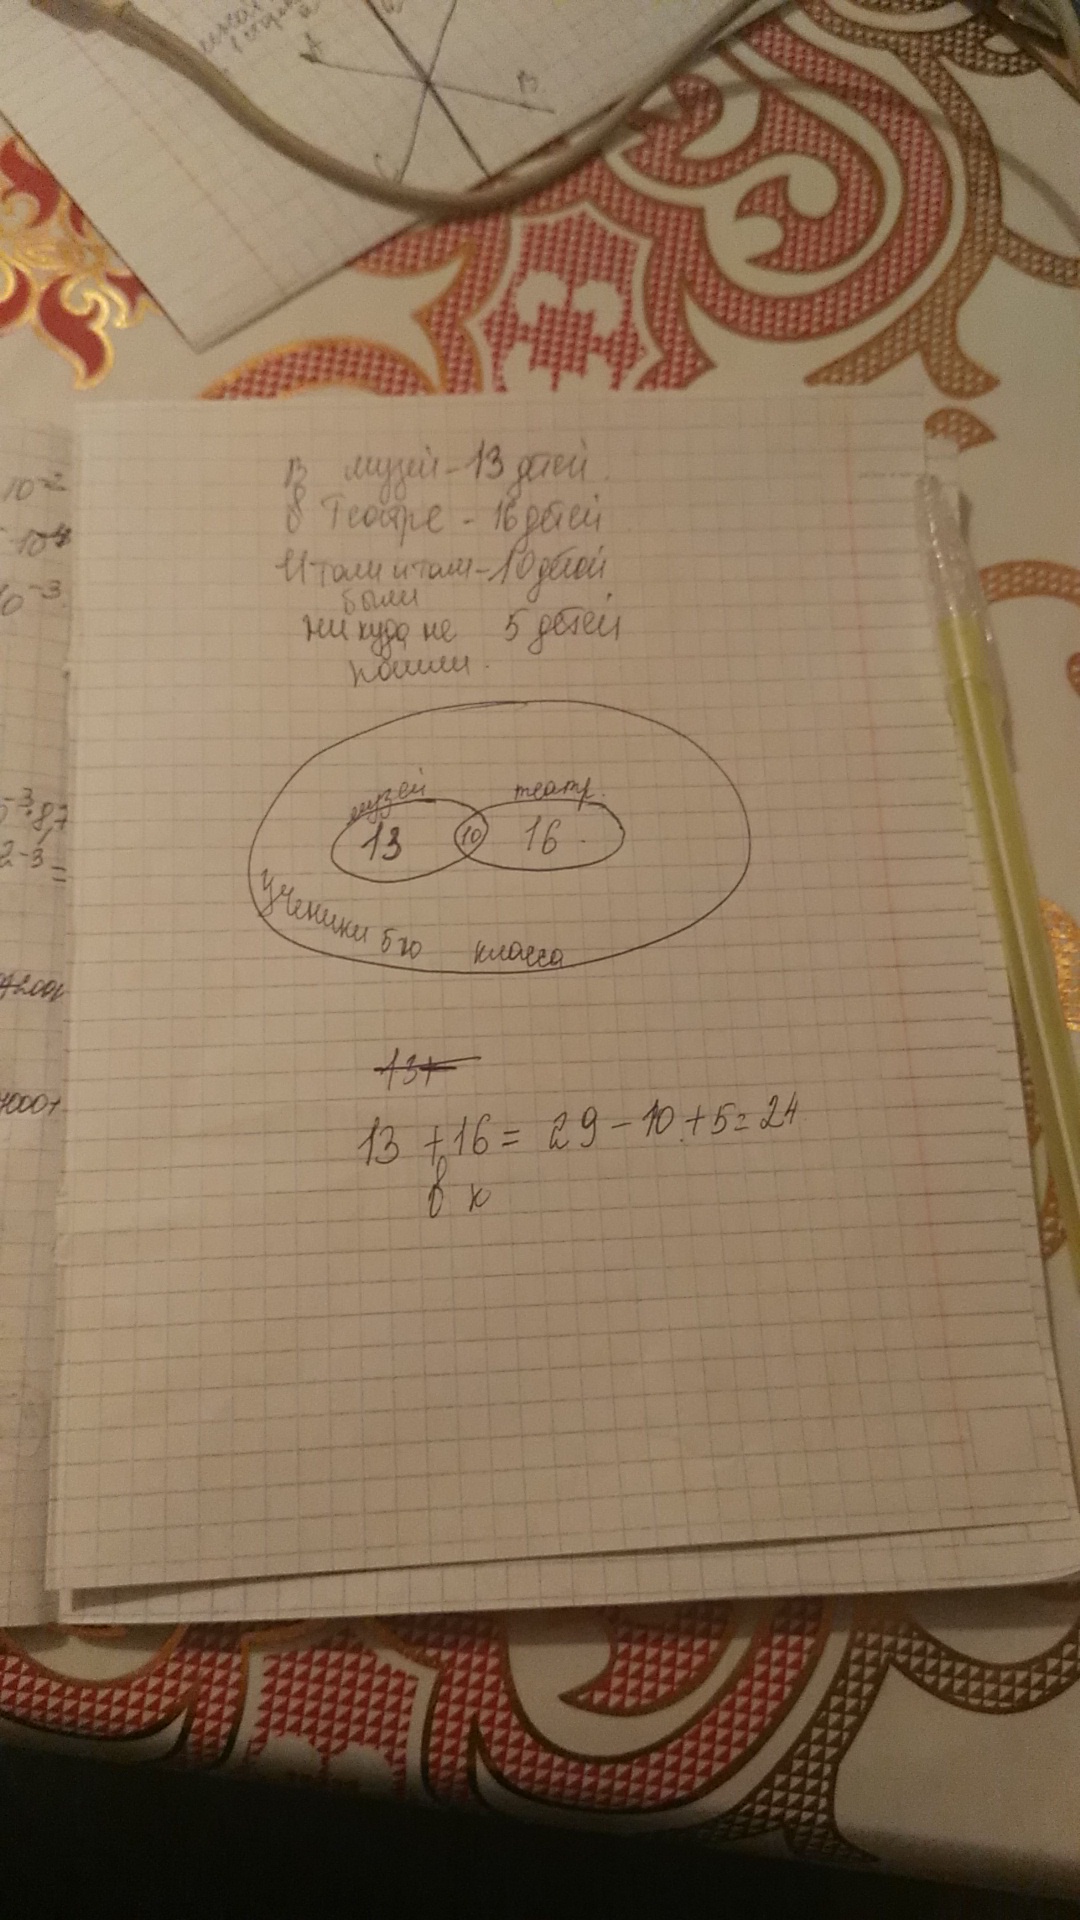 А
В
С
10⁻²
10⁻³
В музей - 13 детей.
В Театре - 16 детей
И там и там - 10 детей
были
никуда не 5 детей
пошли.
музей театр.
13 10 16
ученики 5го класса
13+
13 + 16 = 29 - 10 + 5 = 24
в к